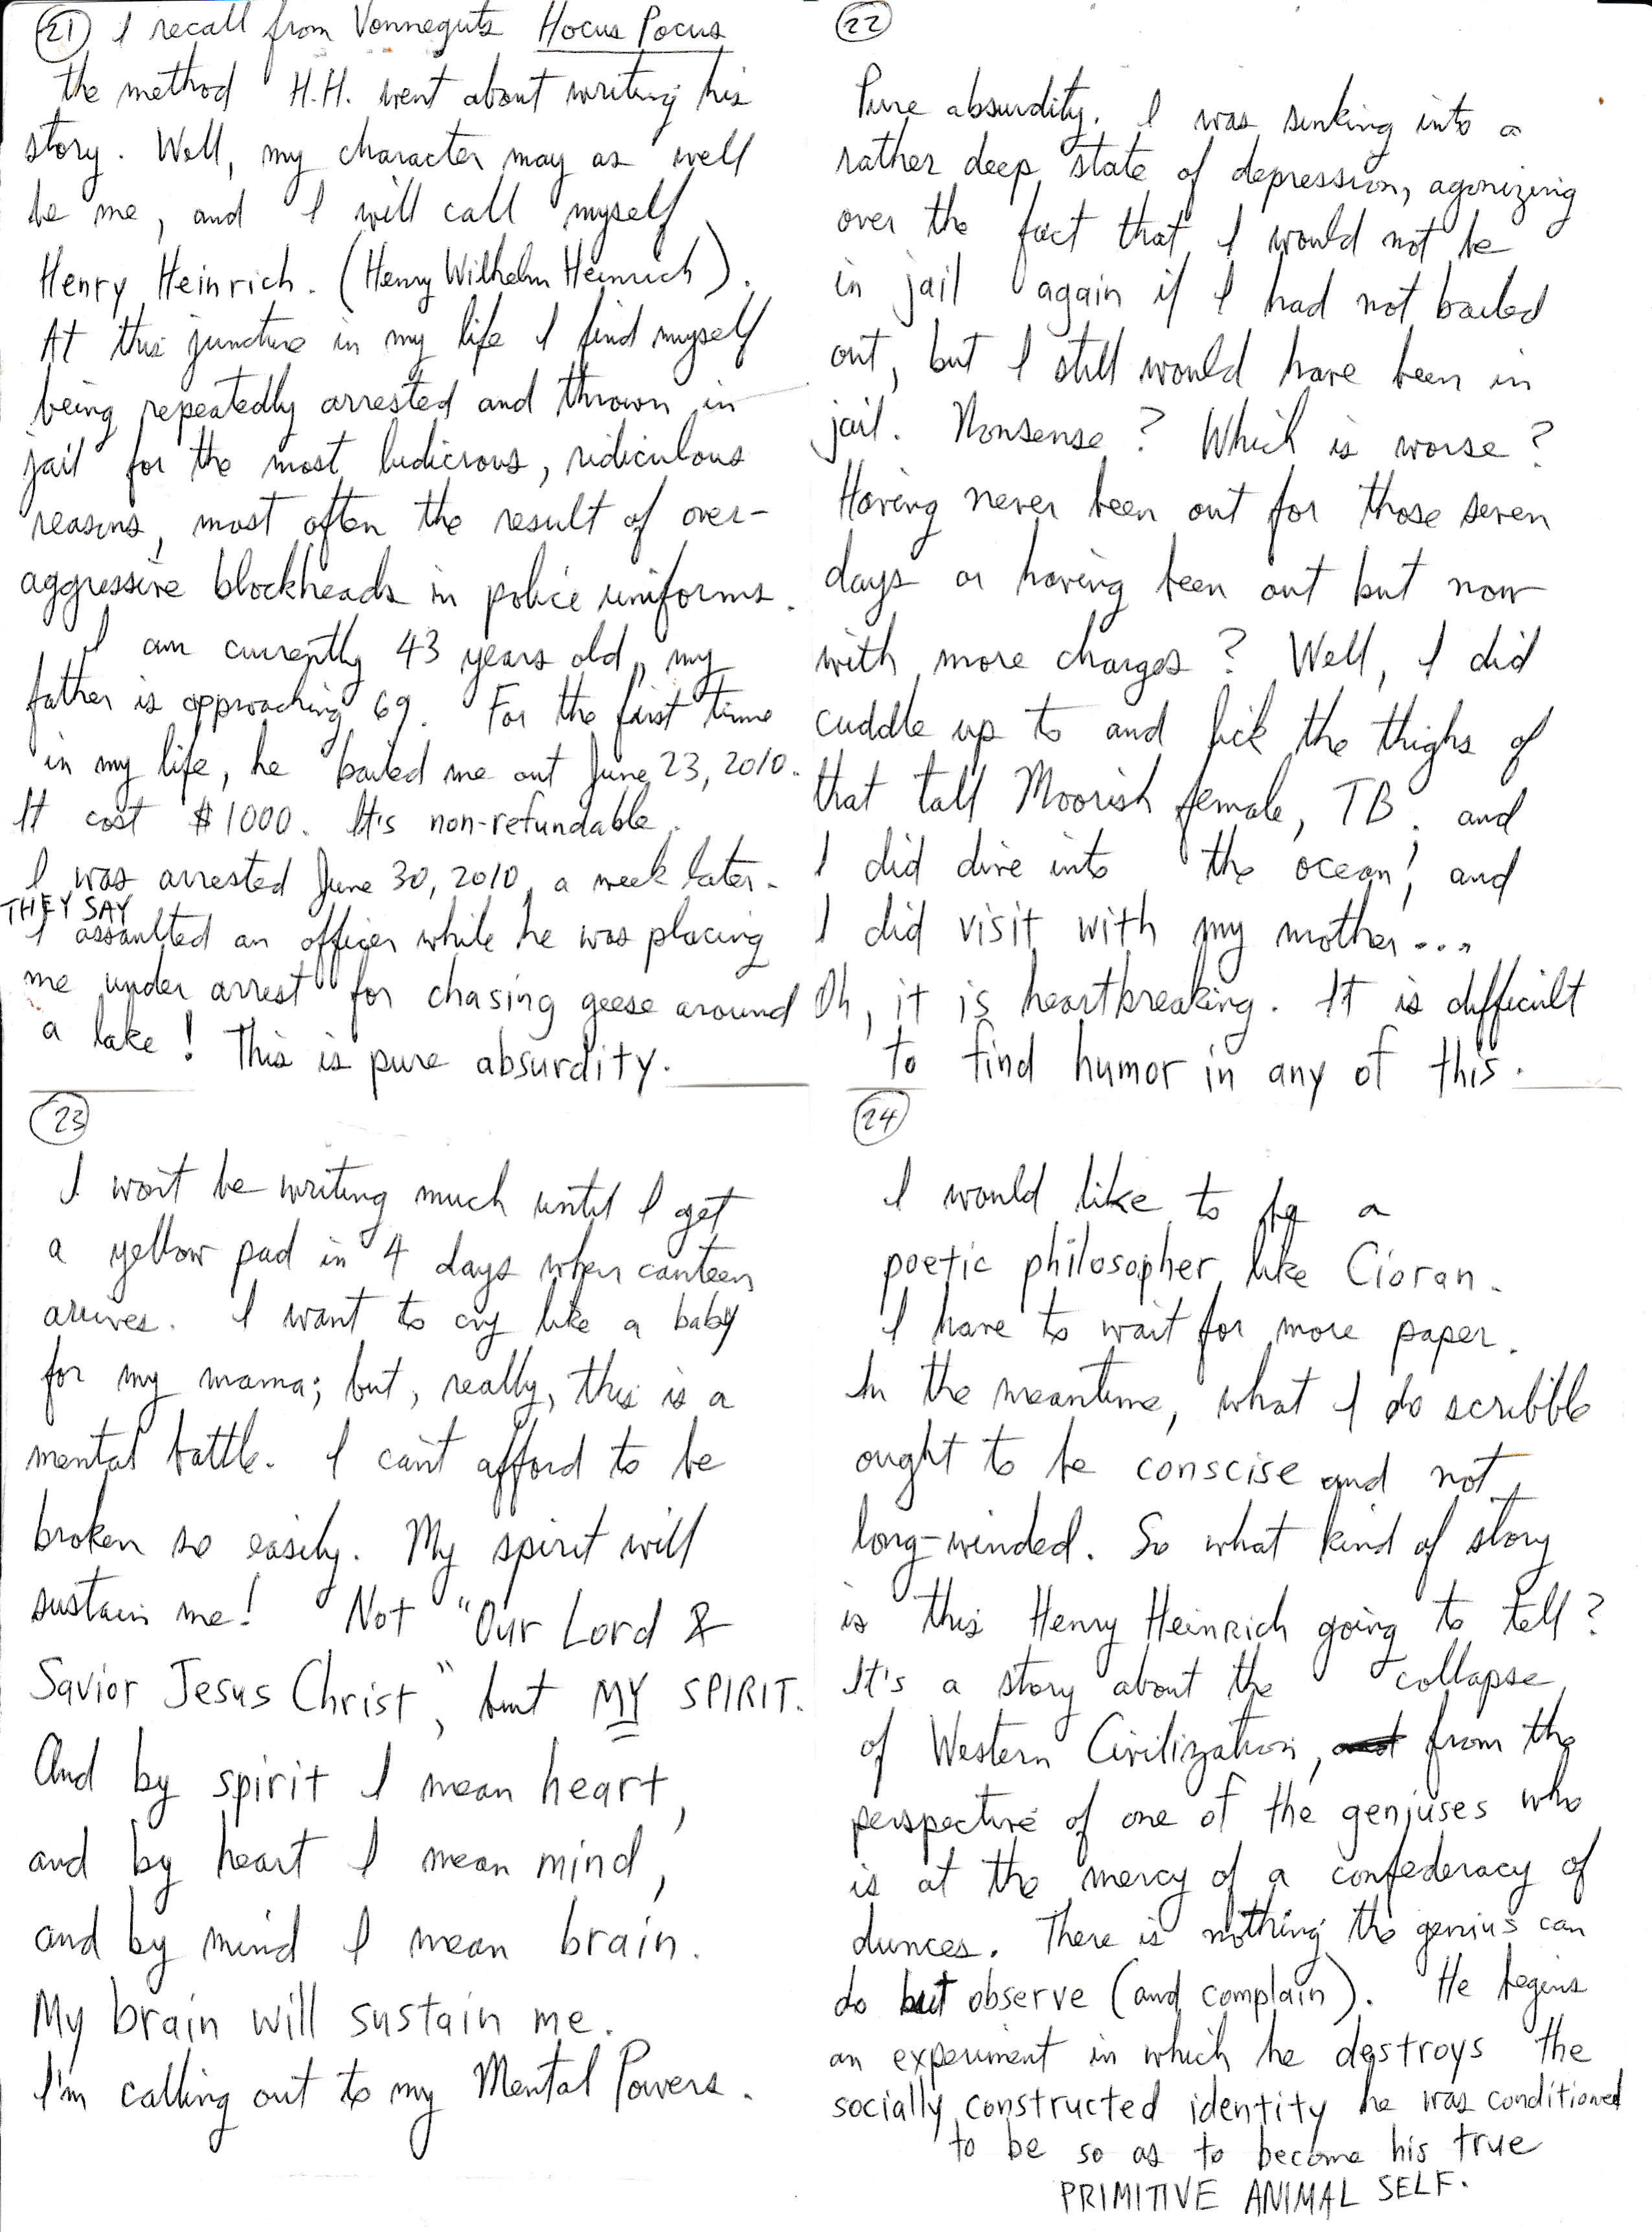 21 I recall from Vonneguts Hocus Pocus
the method H.H. went about writing his
story. Well, my character may as well
be me, and I will call myself
Henry Heinrich. (Henry Wilhelm Heinrich).
At this juncture in my life I find myself
being repeatedly arrested and thrown in
jail for the most ludicrous, ridiculous
reasons, most often the result of over-
aggressive blockheads in police uniforms.
I am currently 43 years old, my
father is approaching 69. For the first time
in my life, he bailed me out June 23, 2010.
It cost $1000. It's non-refundable.
I was arrested June 30, 2010, a week later.
THEY SAY
I assaulted an officer while he was placing
me under arrest for chasing geese around
a lake! This is pure absurdity.
22
Pure absurdity. I was sinking into a
rather deep state of depression, agonizing
over the fact that I would not be
in jail again if I had not bailed
out, but I still would have been in
jail. Nonsense? Which is worse?
Having never been out for those seven
days or having been out but now
with more charges? Well, I did
cuddle up to and lick the thighs of
that tall Moorish female, TB; and
I did dive into the ocean; and
I did visit with my mother...
Oh, it is heartbreaking. It is difficult
to find humor in any of this.
23
I won't be writing much until I get
a yellow pad in 4 days when canteen
arrives. I want to cry like a baby
for my mama; but, really, this is a
mental battle. I can't afford to be
broken so easily. My spirit will
sustain me! Not "Our Lord &
Savior Jesus Christ", but MY SPIRIT.
And by spirit I mean heart,
and by heart I mean mind,
and by mind I mean brain.
My brain will sustain me.
I'm calling out to my Mental Powers.
24
I would like to be a
poetic philosopher like Cioran.
I have to wait for more paper.
In the meantime, what I do scribble
ought to be conscise and not
long-winded. So what kind of story
is this Henry Heinrich going to tell?
It's a story about the collapse
of Western Civilization, from the
perspective of one of the geniuses who
is at the mercy of a confederacy of
dunces. There is nothing the genius can
do but observe (and complain). He begins
an experiment in which he destroys the
socially constructed identity he was conditioned
to be so as to become his true
PRIMITIVE ANIMAL SELF.